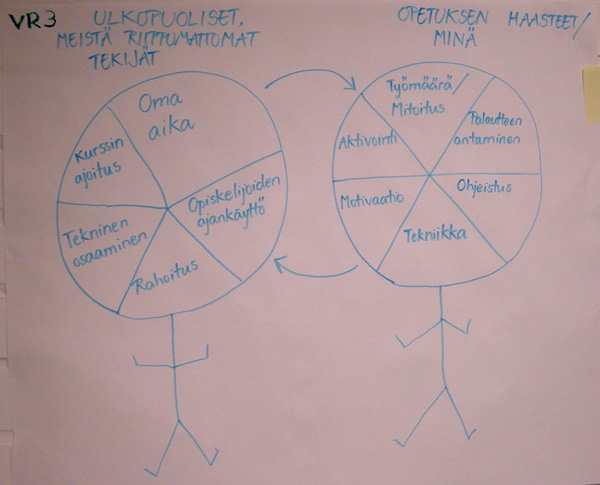 VR3
ULKOPUOLISET,
MEISTÄ RIIPPUMATTOMAT
TEKIJÄT
Oma
aika
Kurssin
ajoitus
Opiskelijoiden
ajankäyttö
Tekninen
osaaminen
Rahoitus
OPETUKSEN HAASTEET/
MINÄ
Työmäärä/
Mitoitus
Aktivointi
Palautteen
antaminen
Motivaatio
Ohjeistus
Tekniikka